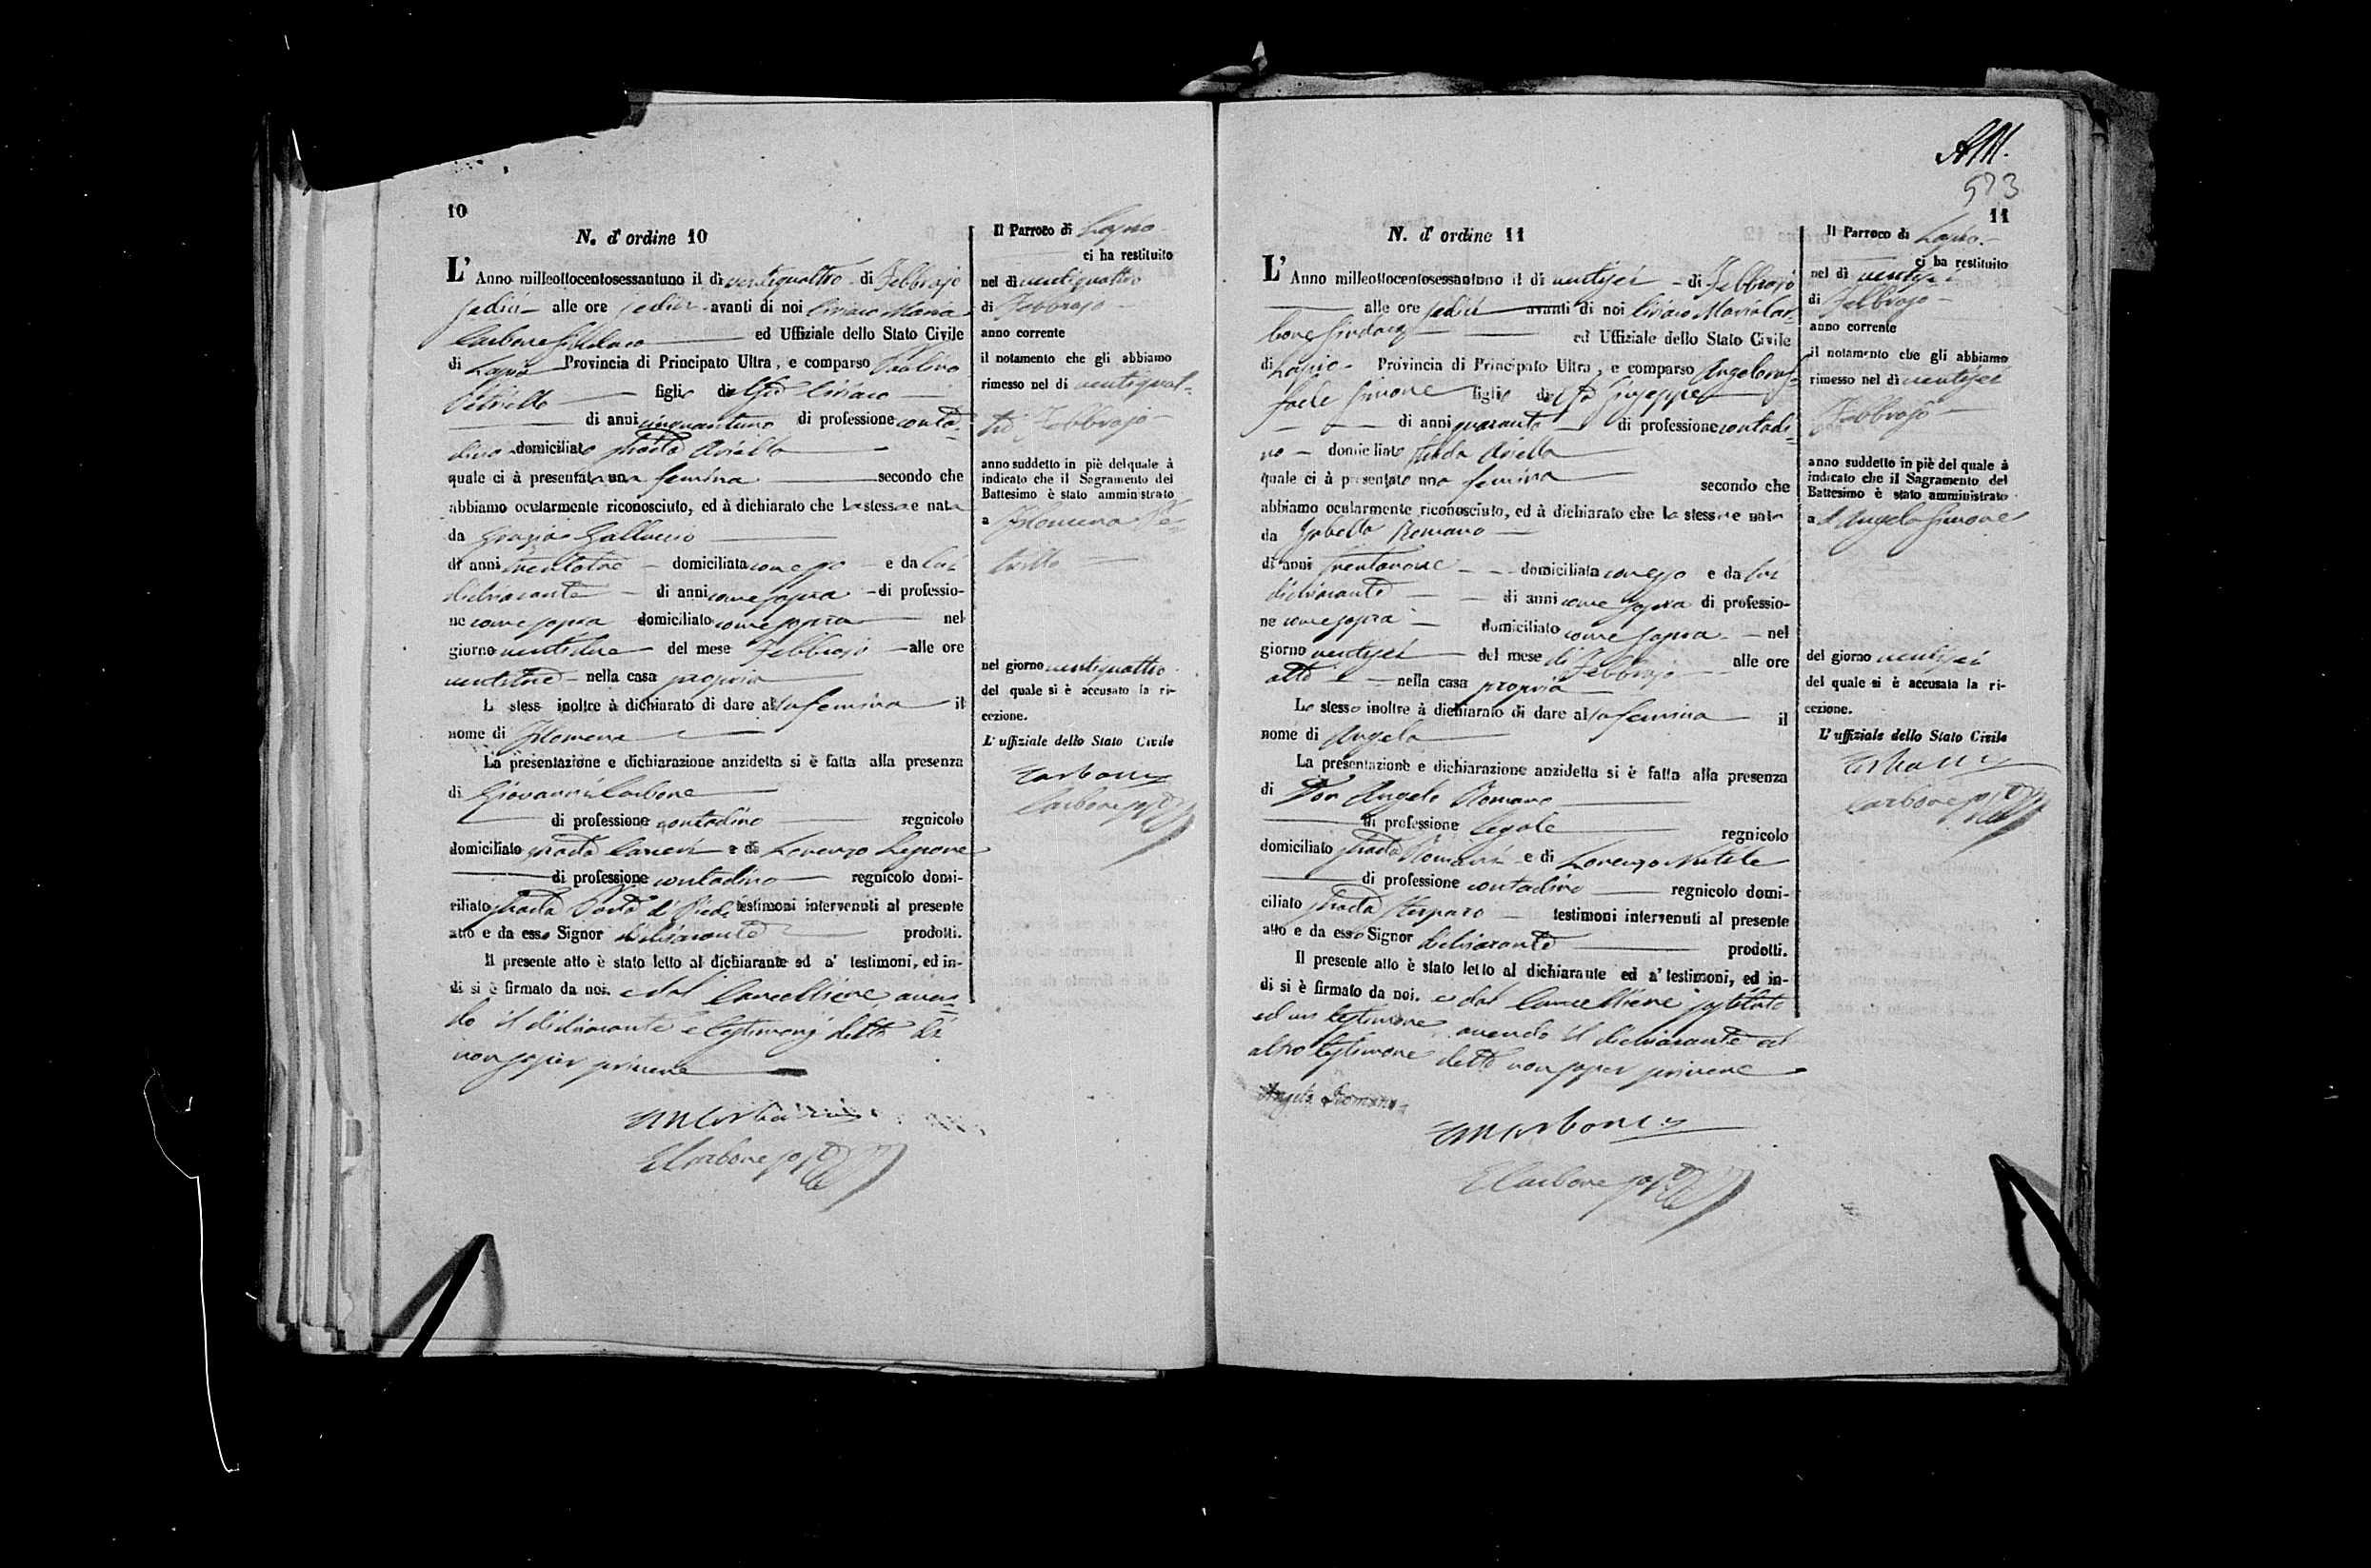 10
N. d' ordine 10
L' Anno milleottocentosessantuno il di ventiquattro di Febbrajo
sedici alle ore sedici avanti di noi Ciriaco Maria
Carbone Sindaco ed Uffiziale dello Stato Civile
di Lapio Provincia di Principato Ultra, e comparso
Petrillo figlio del fù Ciriaco
di anni cinquantuno di professione conta-
dino domiciliato strada Ariella
quale ci à presentata una femina secondo che
abbiamo ocularmente riconosciuto, ed à dichiarato che la stessa e nata
da Grazia Galluccio
di anni trentatre domiciliata con esso e da lui
dichiarante di anni come sopra di professio-
ne come sopra domiciliato come sopra nel
giorno ventidue del mese Febbrajo alle ore
ventitre nella casa propria
L stess inoltre à dichiarato di dare alla femina il
nome di Filomena
La presentazione e dichiarazione anzidetta si è fatta alla presenza
di Giovanni Carbone
di professione contadino regnicolo
domiciliato strada Carceri e di Lorenzo Lepore
di professione contadino regnicolo domi-
ciliato strada Porta di Piedi testimoni intervenuti al presente
atto e da esso Signor dichiarante prodotti.
Il presente atto è stato letto al dichiarante ed a' testimoni, ed in-
di si è firmato da noi. e dal Cancelliere aven-
do il dichiarante e testimonj detto di
non saper scrivere
Carbone
Il Parroco di Lapio
ci ha restituito
nel di ventiquattro
di Febbrajo
anno corrente
il notamento che gli abbiamo
rimesso nel di ventiquat-
tro Febbrajo
anno suddetto in piè del quale à
indicato che il Sagramento del
Battesimo è stato amministrato
a Filomena Pe-
trillo
nel giorno ventiquattro
del quale si è accusato la ri-
cezione.
L' uffiziale dello Stato Civile
Carbone
AM.
573
11
N. d' ordine 11
L' Anno milleottocentosessantuno il di ventisei di Febbrajo
alle ore sedici avanti di noi Ciriaco Maria Car-
bone Sindaco ed Uffiziale dello Stato Civile
di Lapio Provincia di Principato Ultra, e comparso Angeloraf-
faele Simone figlio del fù Giuseppe
di anni quaranta di professione contadi-
no domiciliato strada Ariella
quale ci à presentato una femina secondo che
abbiamo ocularmente riconosciuto, ed à dichiarato che la stessa e nata
da Isabella Romano
di anni trentanove domiciliata con esso e da lui
dichiarante di anni come sopra di professio-
ne come sopra domiciliato come sopra nel
giorno ventisei del mese di Febbrajo alle ore
otto nella casa propria
Lo stesso inoltre à dichiarato di dare alla femina il
nome di Angela
La presentazione e dichiarazione anzidetta si è fatta alla presenza
di Don Angelo Romano
di professione legale regnicolo
domiciliato strada Romani e di Lorenzo Nutile
di professione contadino regnicolo domi-
ciliato strada testimoni intervenuti al presente
atto e da esso Signor dichiarante prodotti.
Il presente atto è stato letto al dichiarante ed a' testimoni, ed in-
di si è firmato da noi. e dal Cancelliere sostituto
ed un testimone avendo il dichiarante ed
altro testimone detto non saper scrivere
Angelo Romano
Carbone
Il Parroco di Lapio
ci ha restituito
nel di ventisei
di Febbrajo
anno corrente
il notamento che gli abbiamo
rimesso nel di ventisei
Febbrajo
anno suddetto in piè del quale à
indicato che il Sagramento del
Battesimo è stato amministrato
a Angela Simone
del giorno ventisei
del quale si è accusata la ri-
cezione.
L' uffiziale dello Stato Civile
Carbone